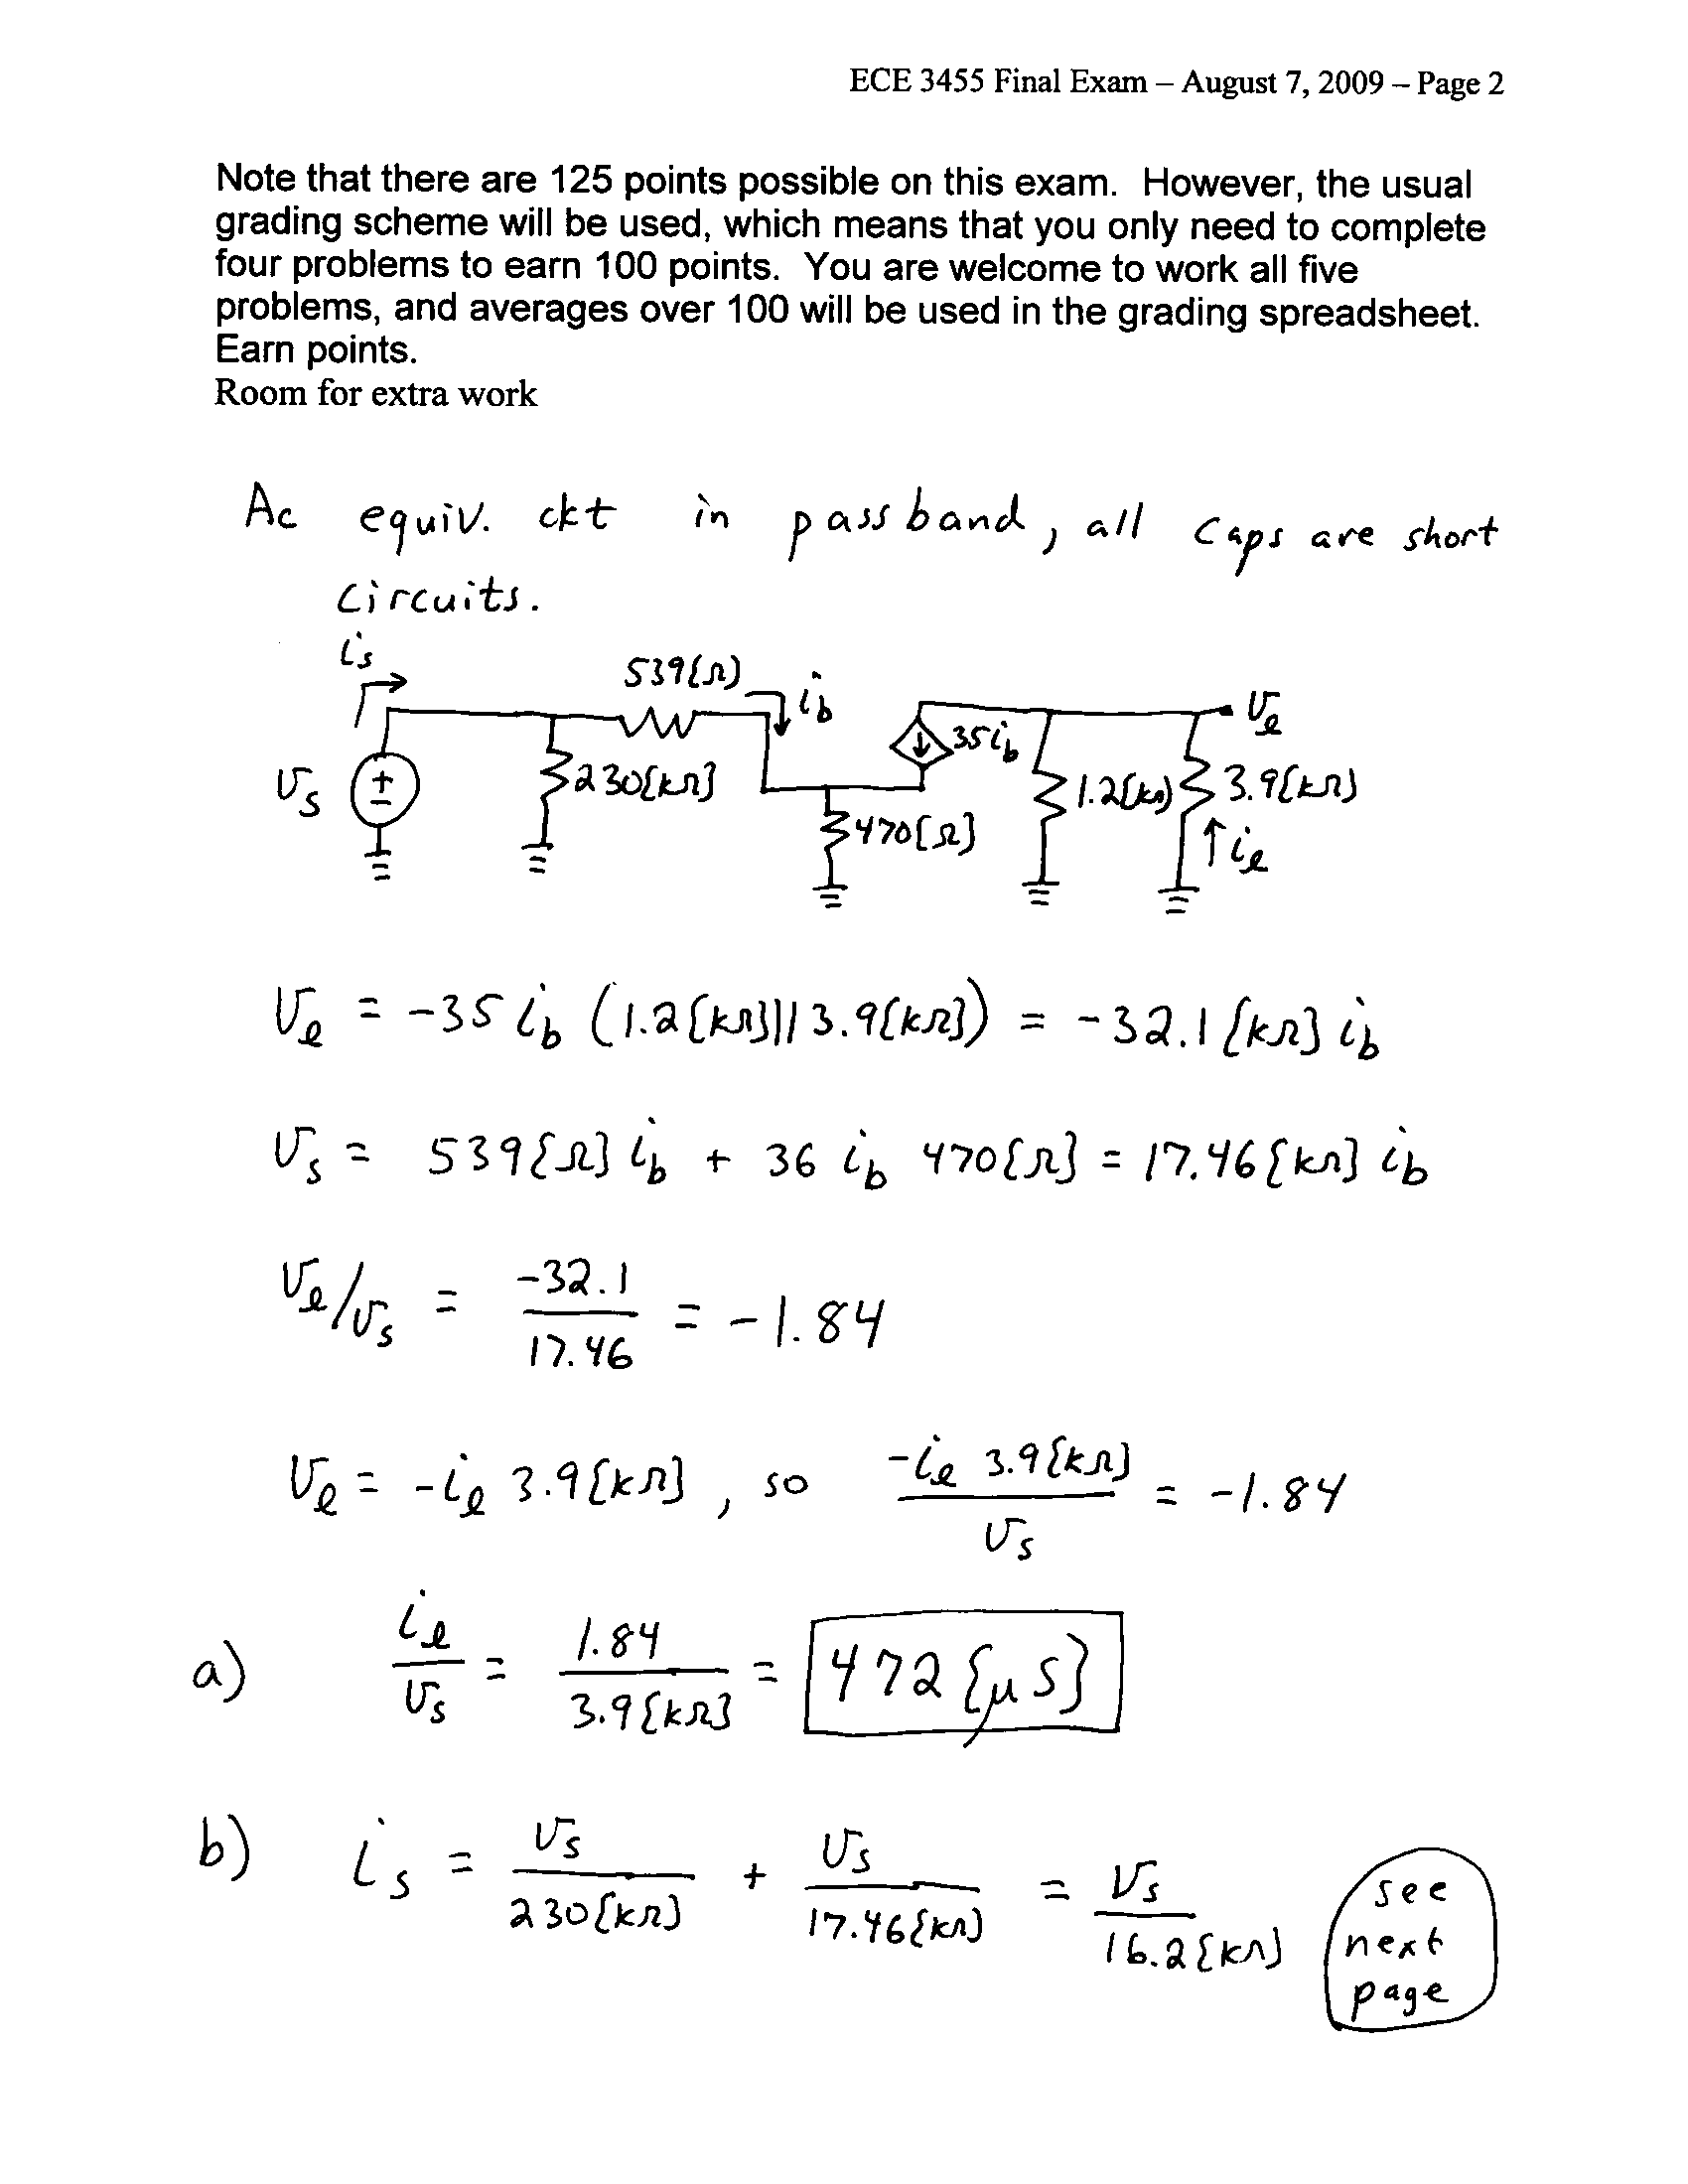 ECE 3455 Final Exam – August 7, 2009 – Page 2
Note that there are 125 points possible on this exam. However, the usual
grading scheme will be used, which means that you only need to complete
four problems to earn 100 points. You are welcome to work all five
problems, and averages over 100 will be used in the grading spreadsheet.
Earn points.
Room for extra work
Ac equiv. ckt in passband, all caps are short
circuits.
i_s
539[Ω]
i_b
v_s
+
−
230[kΩ]
35i_b
470[Ω]
1.2[kΩ]
3.9[kΩ]
v_ℓ
↑i_ℓ
v_ℓ = -35 i_b (1.2[kΩ]||3.9[kΩ]) = -32.1[kΩ] i_b
v_s = 539[Ω] i_b + 36 i_b 470[Ω] = 17.46[kΩ] i_b
v_ℓ/v_s = -32.1/17.46 = -1.84
v_ℓ = -i_ℓ 3.9[kΩ], so -i_ℓ 3.9[kΩ]/v_s = -1.84
a) i_ℓ/v_s = 1.84/3.9[kΩ] = 472[μS]
b) i_s = v_s/230[kΩ] + v_s/17.46[kΩ] = v_s/16.2[kΩ]
see
next
page